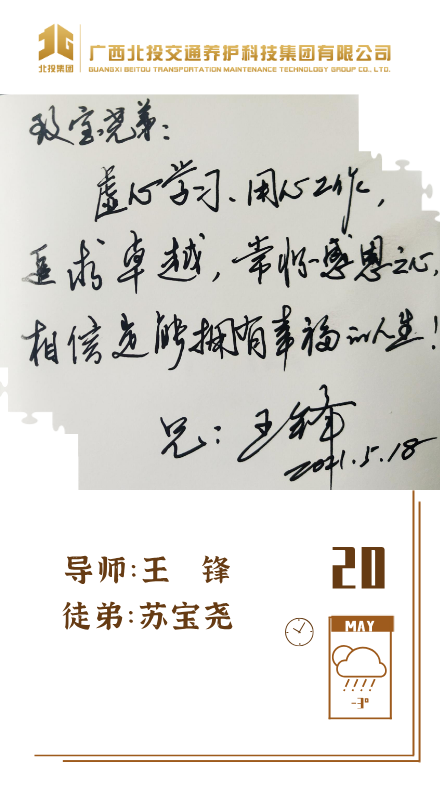 北投集团
广西北投交通养护科技集团有限公司
GUANGXI BEITOU TRANSPORTATION MAINTENANCE TECHNOLOGY GROUP CO., LTD.
致宝尧弟：
虚心学习、用心工作，
追求卓越，常怀感恩之心，
相信定能拥有幸福的人生！
兄：王锋
2021.5.18
导师:王 锋
徒弟:苏宝尧
20
MAY
-3°